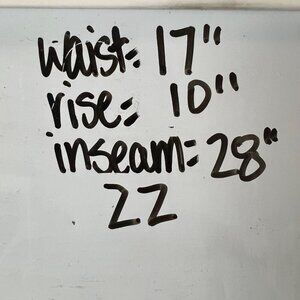 waist: 17"
rise: 10"
inseam: 28"
22